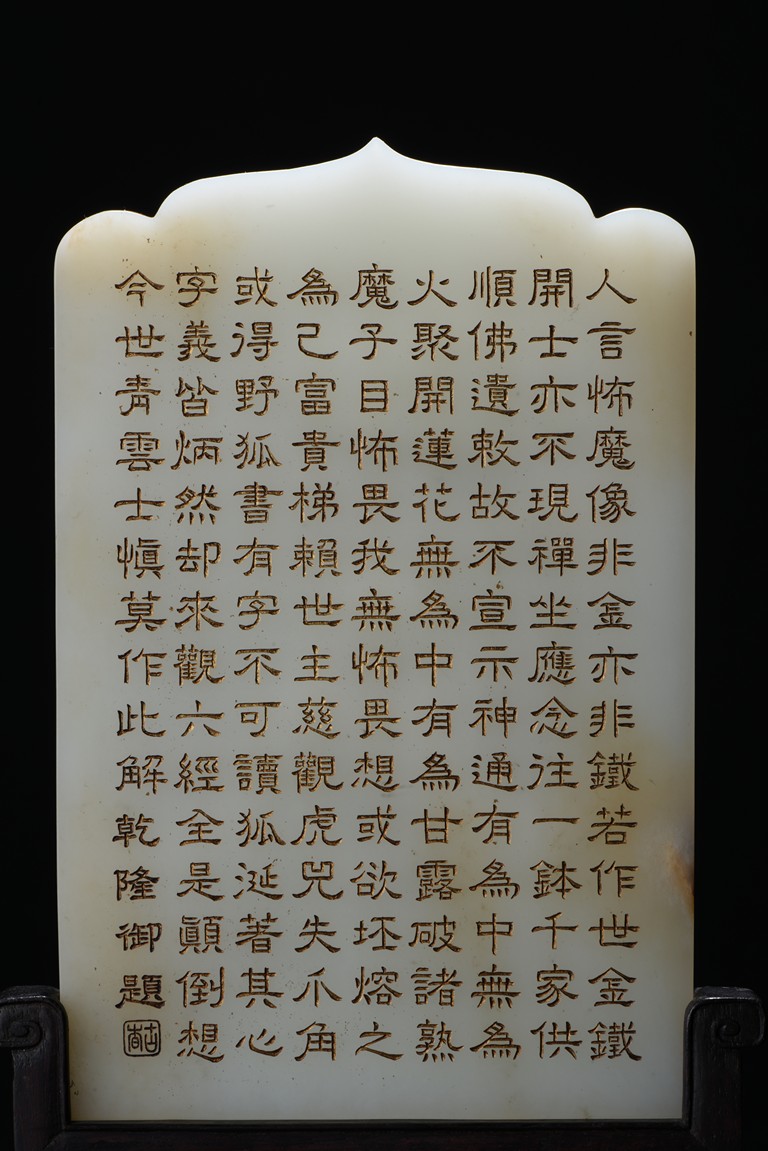 人言怖魔像非金亦非鐵若作世金鐵
開士亦不現禪坐應念往一鉢千家供
順佛遺敕故不宣示神通有為中無為
火聚開蓮花無為中有為甘露破諸熟
魔子目怖畏我無怖畏想或欲坯熔之
為己富貴梯賴世主慈觀虎兕失爪角
或得野狐書有字不可讀狐涎著其心
字義皆炳然却來觀六經全是顛倒想
今世青雲士慎莫作此解乾隆御題